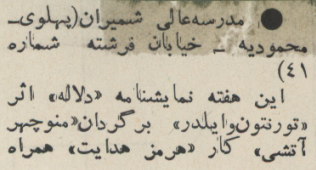 ● مدرسه‌عالی شمیران(پهلوی-
محمودیه - خیابان فرشته شماره
۴۱)
این هفته نمایشنامه «دلاله» اثر
«تورنتون‌وایلدر» برگردان«منوچهر
آتشی» کار «هرمز هدایت» همراه